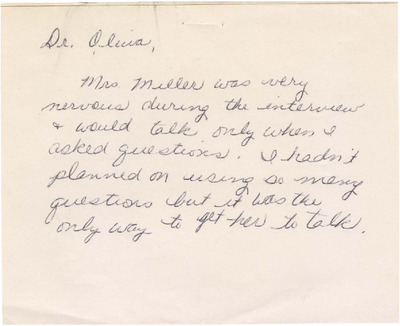 Dr. Oliva,
Mrs. Miller was very
nervous during the interview
& would talk only when I
asked questions. I hadn't
planned on using so many
questions but it was the
only way to get her to talk.